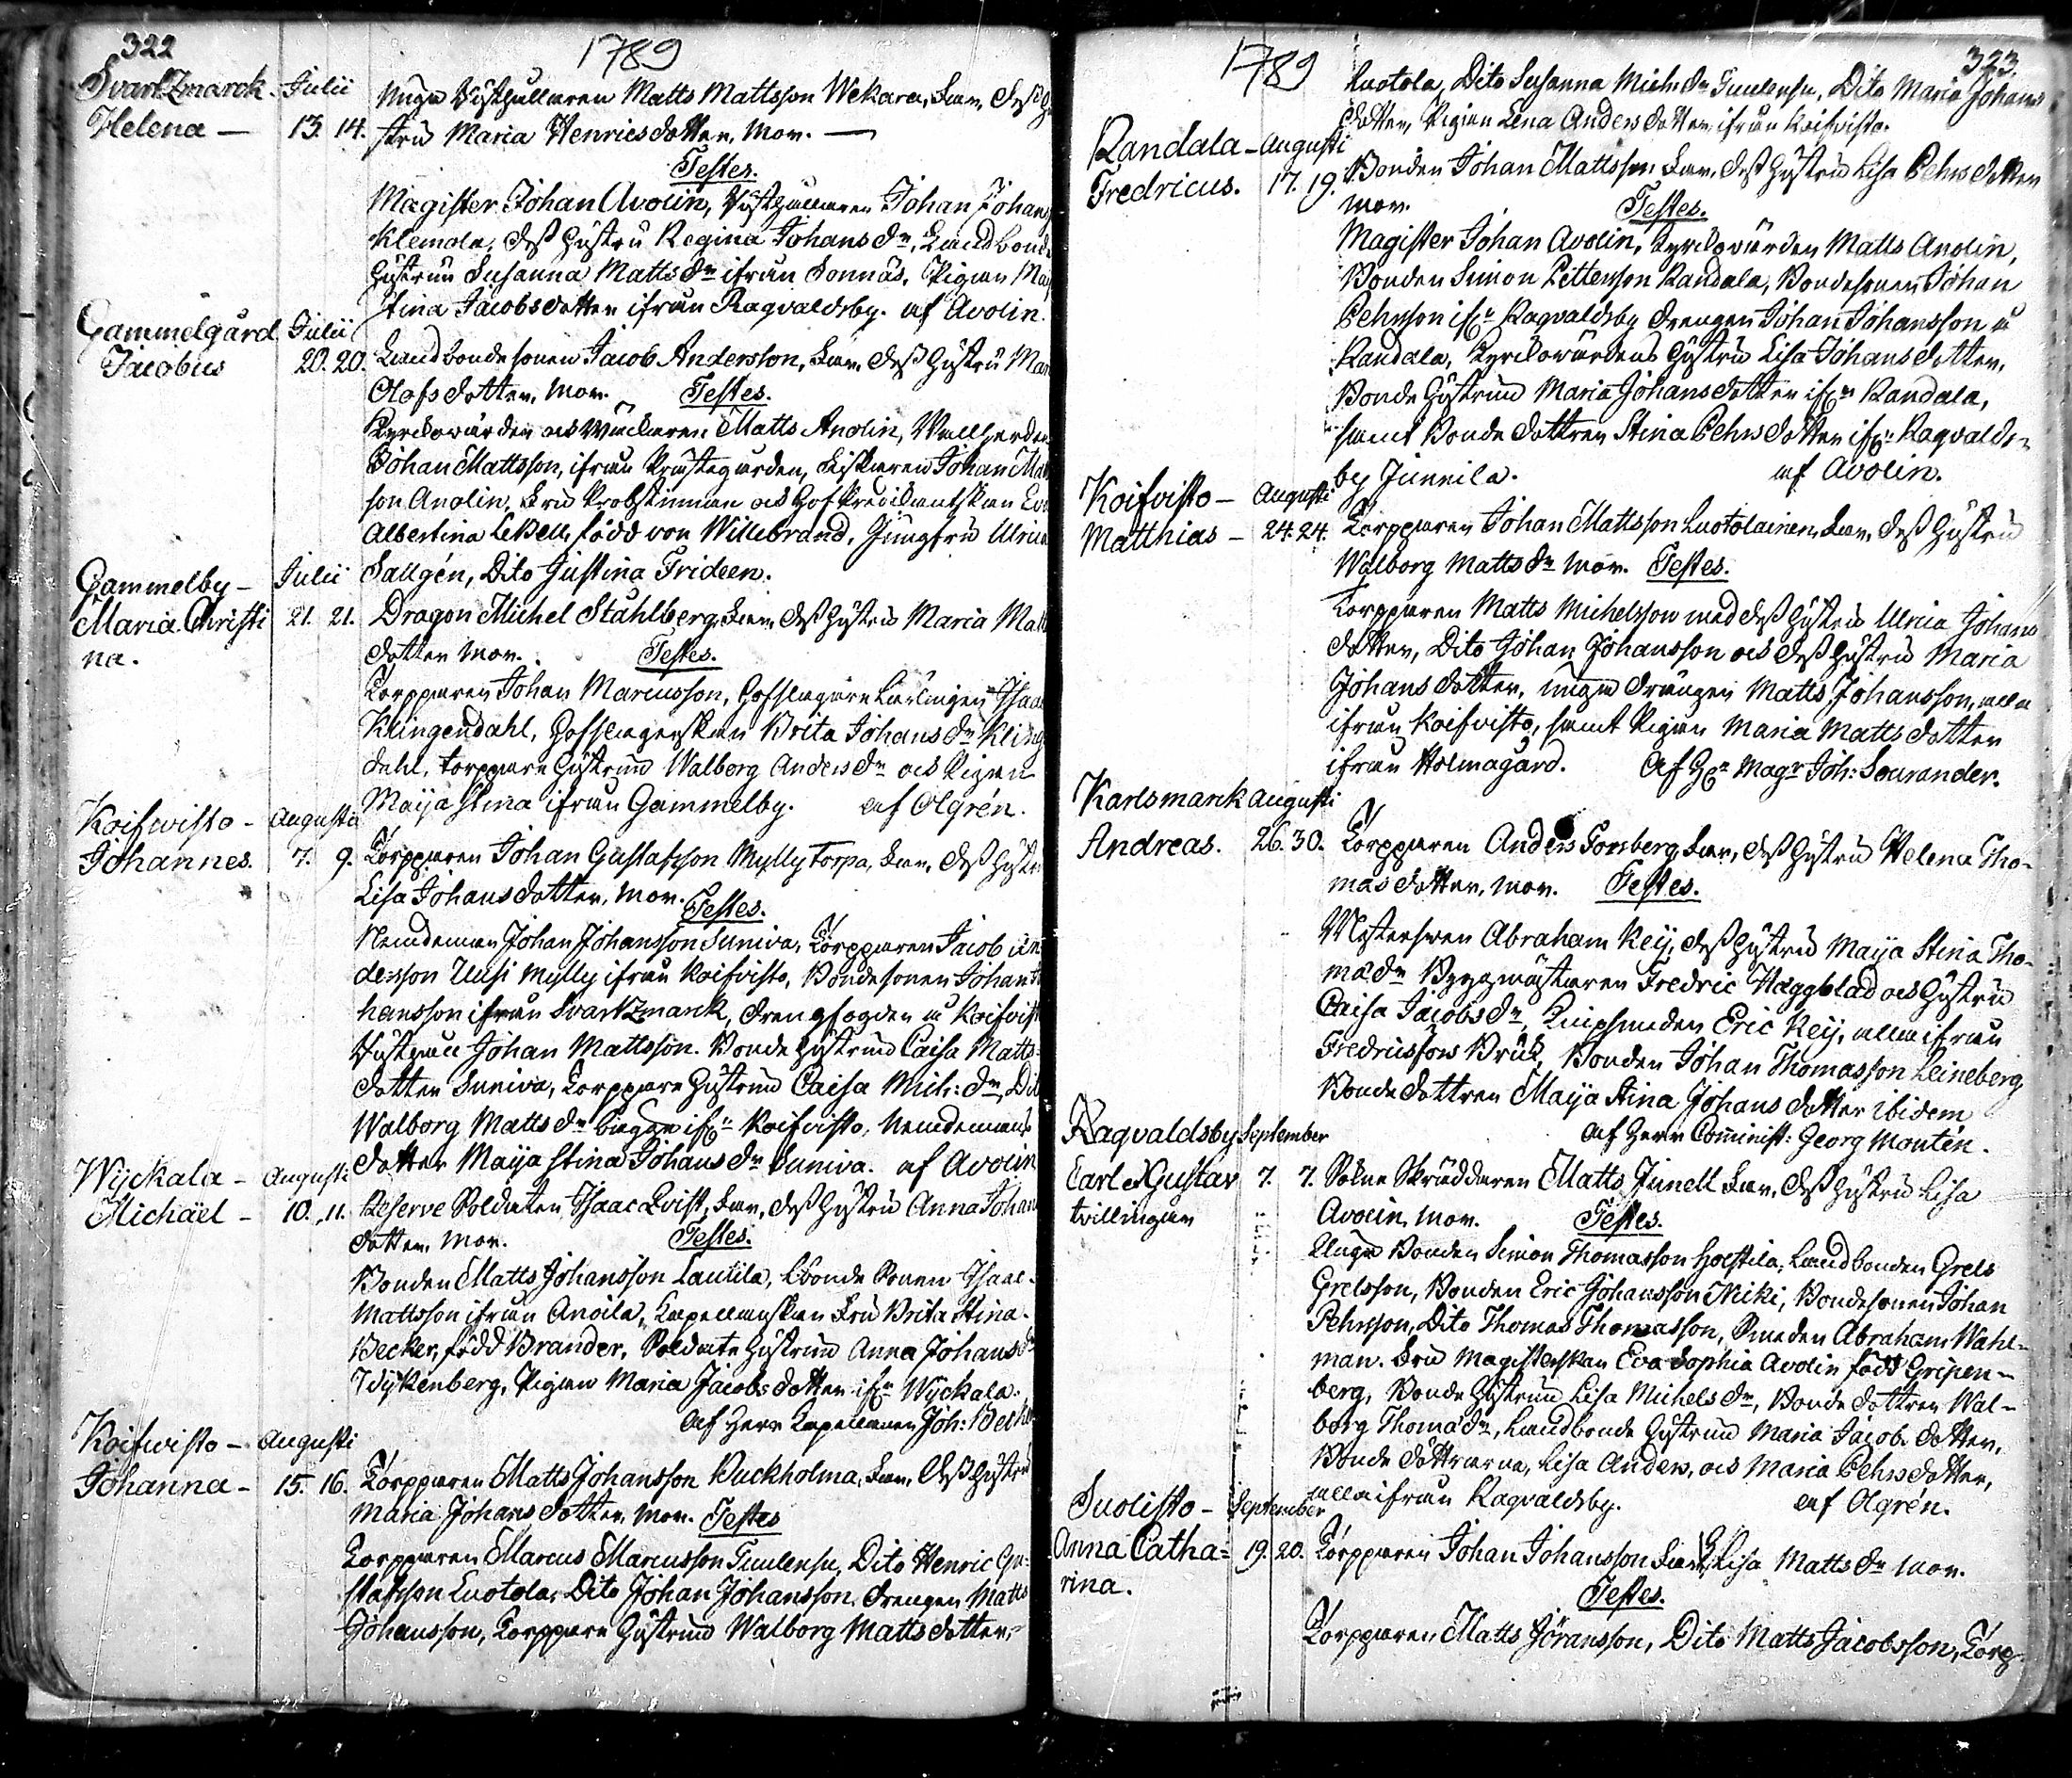 322
1789
Svartzmarck - Julii
Unga Wästgullaren Matts Mattsson Wekara, Far, dess Hu
Helena — 13. 14. stru Maria Henricsdotter, Mor. —
Testes.
Magister Johan Avolin, Johan Johans
Klemola, dess Hustru Regina Johans dr, Landbonde
Hustrun Susanna Matts dr ifrån Sonnäs, Pigan Maj
Stina Jacobsdotter ifrån Ragvaldsby. af Avolin.
Gammelgård Julii
Jacobus 20. 20. Landbondesonen Jacob Andersson, Far, dess Hustru Mar
Olofsdotter, Mor. Testes.
Kyrckowärden och Matts Anolin,
Johan Mattsson, ifrån Prästegården, Fiskaren Johan Mat
son Anolin, Fru Probstinnan och Hofpredikantskan Eva
Albertina Lebell, född von Willebrand, Jungfru Ulrica
Gammelby - Julii Sallgén, Dito Justina Frideen.
Maria Christi 21. 21. Dragon Michel Ståhlberg, Far, dess Hustru Maria Matts
na. dotter Mor. Testes.
Torpparen Johan Marcusson, Hofslagare Lärlingen Isaac
Klingendahl, Hofslagerskan Brita Johans dr Kling
dahl, torppare Hustrun Walborg Anders dr och Pigan
Maija Stina ifrån Gammelby. af Olgrén.
Koifwisto - Augusti
Johannes. 7. 9. Torpparen Johan Gustafsson Myllytorpa, Far, dess Hustru
Lisa Johansdotter, Mor. Testes.
Nemdeman Johan Johansson Suniva, Torpparen Jacob An
dersson Uusi Mylly ifrån Koifvisto, Bondesonen Johan Jo
hansson ifrån Svartzmarck, Drengfogden å Koifvisto
Johan Mattsson. Bonde Hustrun Caisa Matts-
dotter Suniva, Torppare Hustrun Caisa Mich: dr, Dito
Walborg Matts dr begge ifrn Koifvisto, Nemdemans
dotter Maija Stina Johans dr Suniva. af Avolin
Wyckala - Augusti
Michaël - 10. 11. Reserve Soldaten Isaac Qvist, Far, dess Hustru Anna Johans
dotter, Mor. Testes.
Bonden Matts Johansson Laurila, Bonde Sonen Isaac
Mattsson ifrån Anoila, Capellanskan Fru Brita Stina
Becker, född Brander, Soldate Hustrun Anna Johans dr
Wykenberg, Pigan Maria Jacobsdotter ifrn Wyckala.
af Herr Capellanen Joh: Becker
Koifwisto - Augusti
Johanna - 15. 16. Torpparen Matts Johansson Buckholma, Far, dess Hustru
Maria Johansdotter, Mor. Testes
Torpparen Marcus Marcusson Tuulensu, Dito Henric Gu-
stafsson Luotola, Dito Johan Johansson, Drengen Matts
Johansson, Torppare Hustrun Walborg Mattsdotter,
1789
323.
Luotola, Dito Susanna Mich: dr Tuulensu, Dito Maria Johans
dotter, Pigan Lena Andersdotter ifrån Koifvisto.
Randala - Augusti
Fredricus. 17. 19. Bonden Johan Mattsson Far, dess Hustru Lisa Pehrsdotter
Mor. Testes.
Magister Johan Avolin, Kyrckowärden Matts Anolin,
Bonden Simon Pettersson Randala, Bondesonen Johan
Pehrsson ifrn Ragvaldsby Drengen Johan Johansson å
Randala, Kyrckowärdens Hustru Lisa Johansdotter,
Bonde Hustrun Maria Johansdotter ifrn Randala,
samt Bonde dottren Stina Pehrsdotter ifrn Ragvalds-
by Junnila. af Avolin.
Koifvisto - Augusti
Matthias - 24. 24. Torpparen Johan Mattsson Luotolainen, Far, dess Hustru
Walborg Matts dr Mor. Testes.
Torpparen Matts Michelsson med dess Hustru Ulrica Johans
dotter, Dito Johan Johansson och dess Hustru Maria
Johansdotter, unga Drängen Matts Johansson, alla
ifrån Koifvisto, samt Pigan Maria Mattsdotter
ifrån Holmagård. Af Hr Magr Joh: Sourander.
Karlsmark Augusti
Andreas. 26. 30. Torpparen Anders Forsberg Far, dess Hustru Helena Tho-
masdotter, Mor. Testes.
Mestersven Abraham Keij, dess Hustru Maija Stina Tho-
mæ dr Byggmästaren Fredric Häggblad och Hustru
Caisa Jacobs dr, Knipsmeden Eric Keij, alla ifrån
Fredricsfors Bruk, Bonden Johan Thomasson Leineberg
Bonde dottren Maija Stina Johansdotter ibidem
af Herr Comminist: Georg Montén.
Ragvaldsby September
Carl Gustav 7. 7. Sokne Skräddaren Matts Junell Far, dess Hustru Lisa
tvillingar Avolin, Mor. Testes.
Unga Bonden Simon Thomasson Hoestila, Landbonden Grels
Grelsson, Bonden Eric Johansson Nicki, Bondesonen Johan
Pehrsson, Dito Thomas Thomasson, Smeden Abraham Wahl-
man. Fru Magisterskan Eva Sophia Avolin född Gripen-
berg, Bonde Hustrun Lisa Michels dr, Bonde dottren Wal-
borg Thomæ dr, Landbonde Hustrun Maria Jacobs dotter,
Bonde döttrarna, Lisa Anders, och Maria Pehrsdotter,
alla ifrån Ragvaldsby. af Olgrén.
Suolisto - September
Anna Catha= 19. 20. Torpparen Johan Johansson Far, H. Lisa Matts dr Mor.
rina. Testes.
Torpparen Matts Jöransson, Dito Matts Jacobsson, Torp-